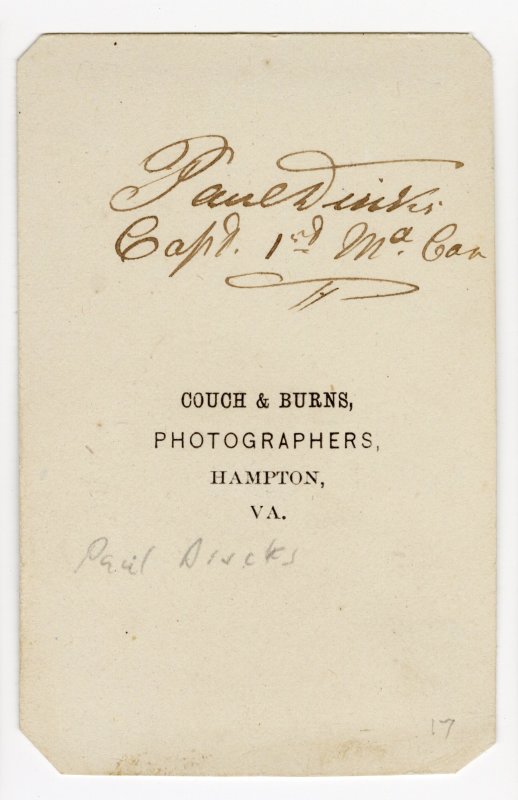 Paul Dircks
Capt. 1st Md. Cav
COUCH & BURNS,
PHOTOGRAPHERS,
HAMPTON,
VA.
Paul Dircks
17